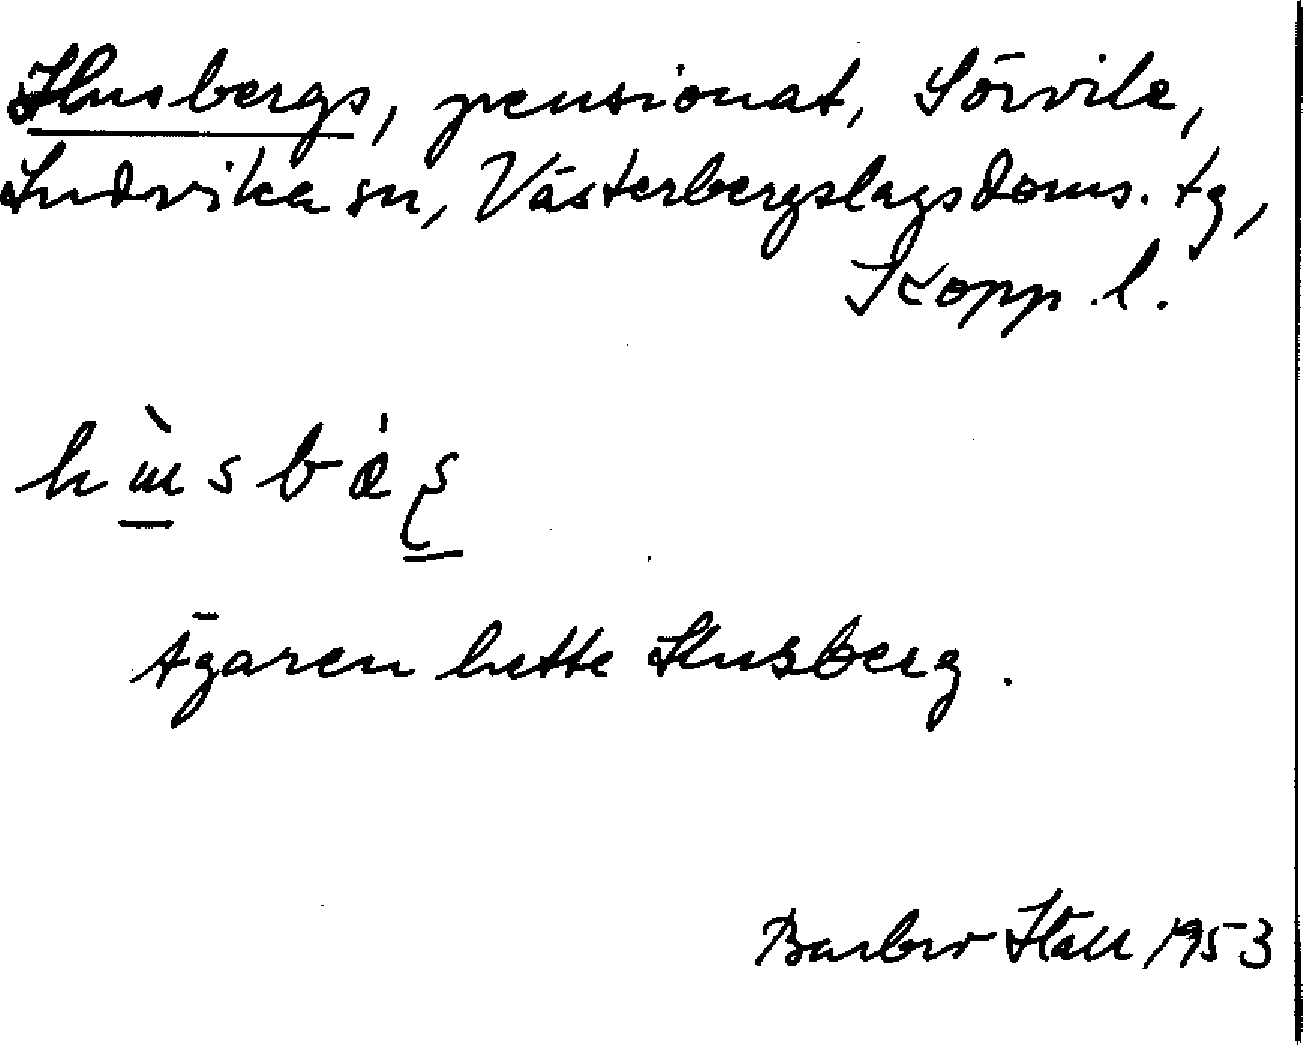 Husbergs, pensionat, Sörvik,
Ludvika sn, Västerbergslags doms. tg,
Kopp. l.
Ägaren hette Husberg.
1953